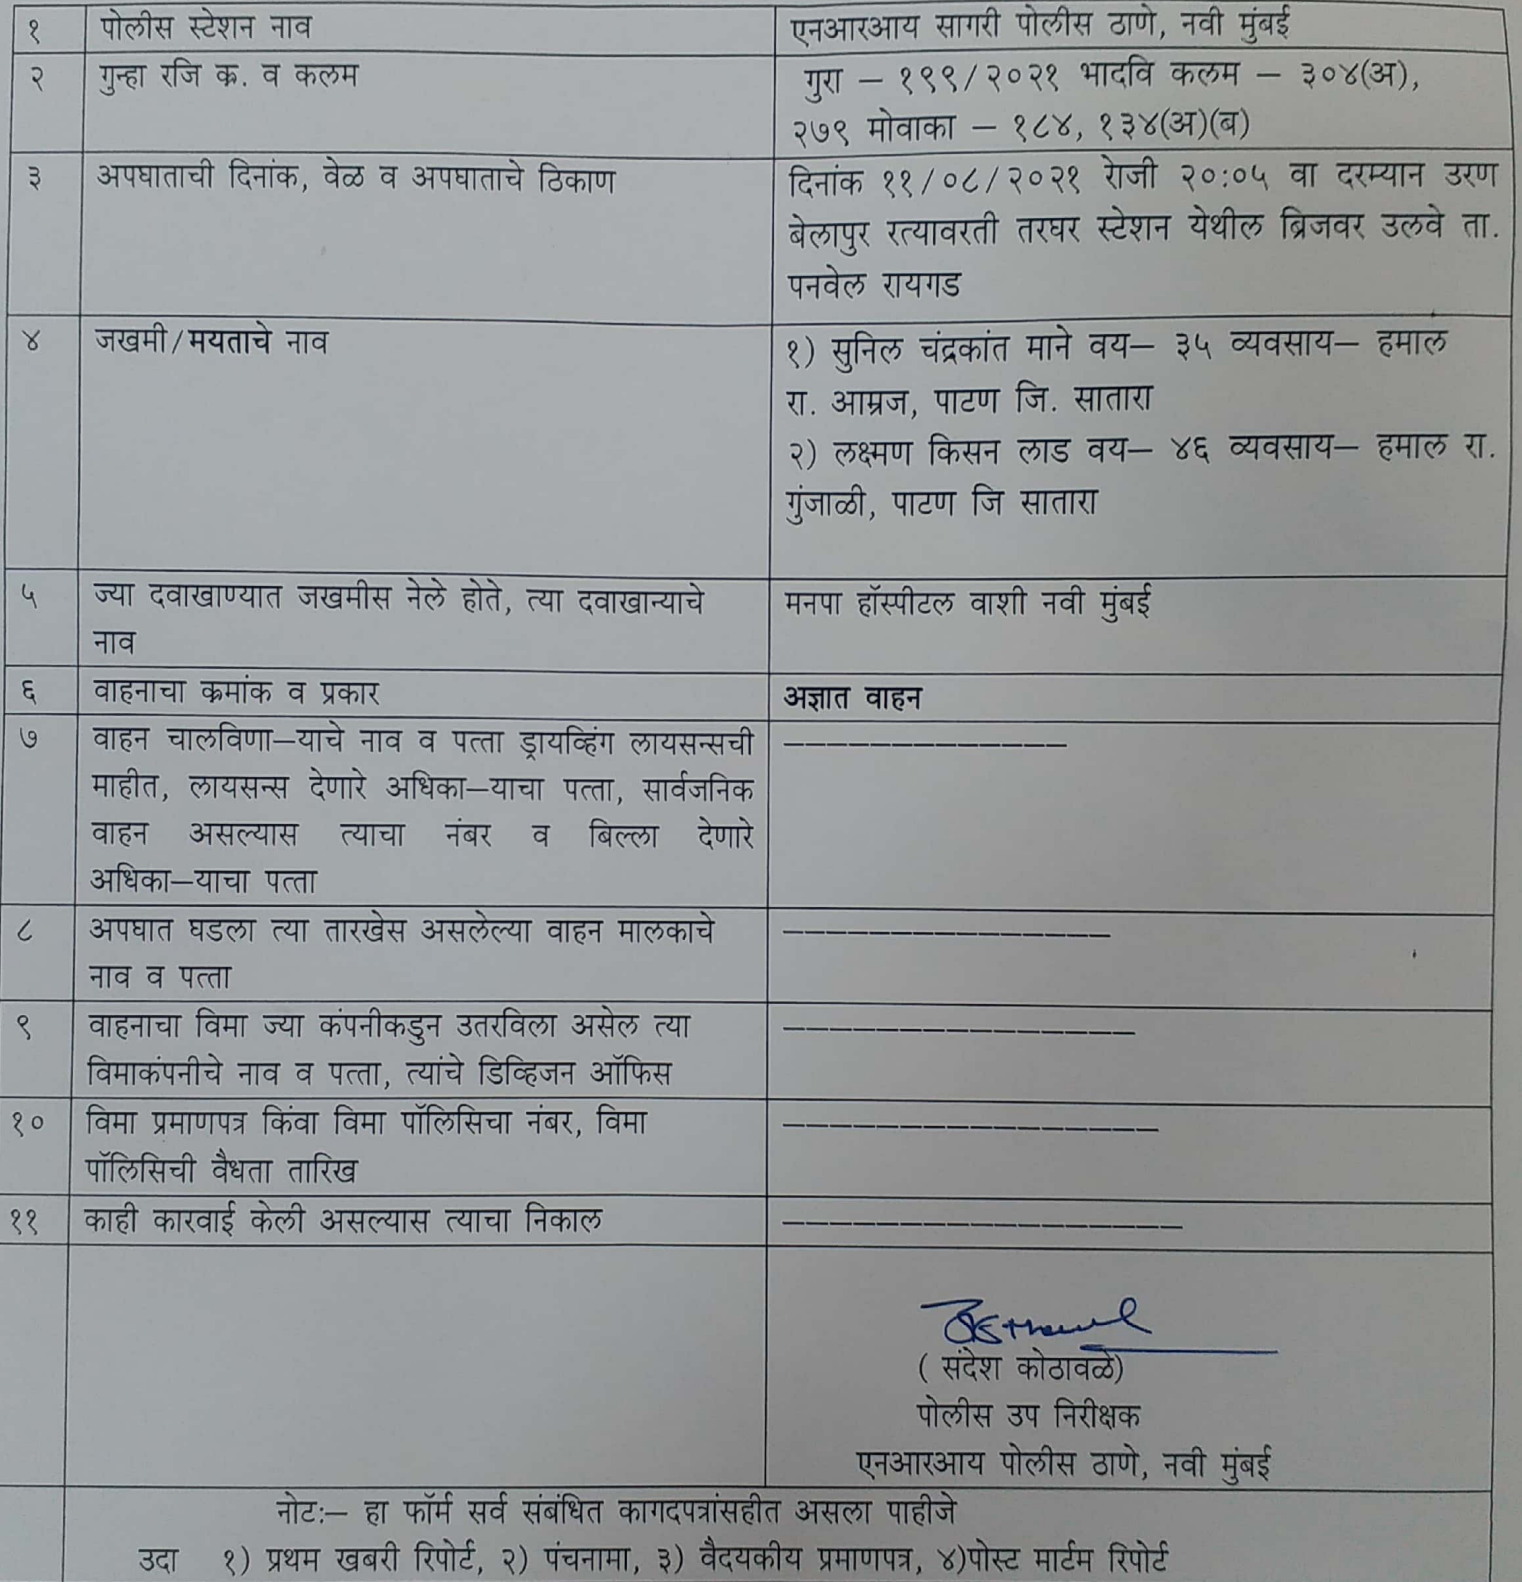 १ पोलीस स्टेशन नाव एनआरआय सागरी पोलीस ठाणे, नवी मुंबई
२ गुन्हा रजि क्र. व कलम गुरा – १९९/२०२१ भादवि कलम – ३०४(अ),
२७९ मोवाका – १८४, १३४(अ)(ब)
३ अपघाताची दिनांक, वेळ व अपघाताचे ठिकाण दिनांक ११/०८/२०२१ रोजी २०:०५ वा दरम्यान उरण
बेलापुर रत्यावरती तरघर स्टेशन येथील ब्रिजवर उलवे ता.
पनवेल रायगड
४ जखमी/मयताचे नाव १) सुनिल चंद्रकांत माने वय– ३५ व्यवसाय– हमाल
रा. आम्रज, पाटण जि. सातारा
२) लक्ष्मण किसन लाड वय– ४६ व्यवसाय– हमाल रा.
गुंजाळी, पाटण जि सातारा
५ ज्या दवाखाण्यात जखमीस नेले होते, त्या दवाखान्याचे मनपा हॉस्पीटल वाशी नवी मुंबई
नाव
६ वाहनाचा क्रमांक व प्रकार अज्ञात वाहन
७ वाहन चालविणा–याचे नाव व पत्ता ड्रायव्हिंग लायसन्सची –––––––––––––
माहीत, लायसन्स देणारे अधिका–याचा पत्ता, सार्वजनिक
वाहन असल्यास त्याचा नंबर व बिल्ला देणारे
अधिका–याचा पत्ता
८ अपघात घडला त्या तारखेस असलेल्या वाहन मालकाचे –––––––––––––––
नाव व पत्ता
९ वाहनाचा विमा ज्या कंपनीकडुन उतरविला असेल त्या ––––––––––––––––
विमाकंपनीचे नाव व पत्ता, त्यांचे डिव्हिजन ऑफिस
१० विमा प्रमाणपत्र किंवा विमा पॉलिसिचा नंबर, विमा –––––––––––––––––
पॉलिसिची वैधता तारिख
११ काही कारवाई केली असल्यास त्याचा निकाल ––––––––––––––––––
( संदेश कोठावळे)
पोलीस उप निरीक्षक
एनआरआय पोलीस ठाणे, नवी मुंबई
नोटः– हा फॉर्म सर्व संबंधित कागदपत्रांसहीत असला पाहीजे
उदा १) प्रथम खबरी रिपोर्ट, २) पंचनामा, ३) वैदयकीय प्रमाणपत्र, ४)पोस्ट मार्टम रिपोर्ट